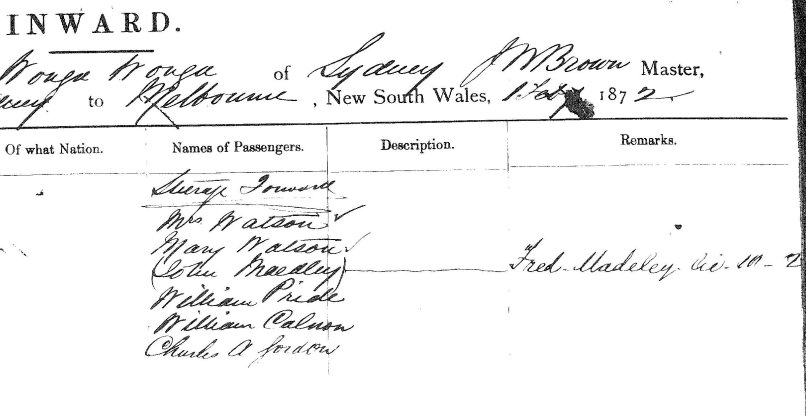 INWARD.
Wonga Wonga of Sydney J W Brown Master,
to Melbourne, New South Wales, 1 1872
Of what Nation. Names of Passengers. Description. Remarks.
Steerage Forward
Mrs Watson ✓
Mary Watson ✓
(John Maedley) Fred Madeley 10-2
William Pride
William Calnon
Charles A Gordon